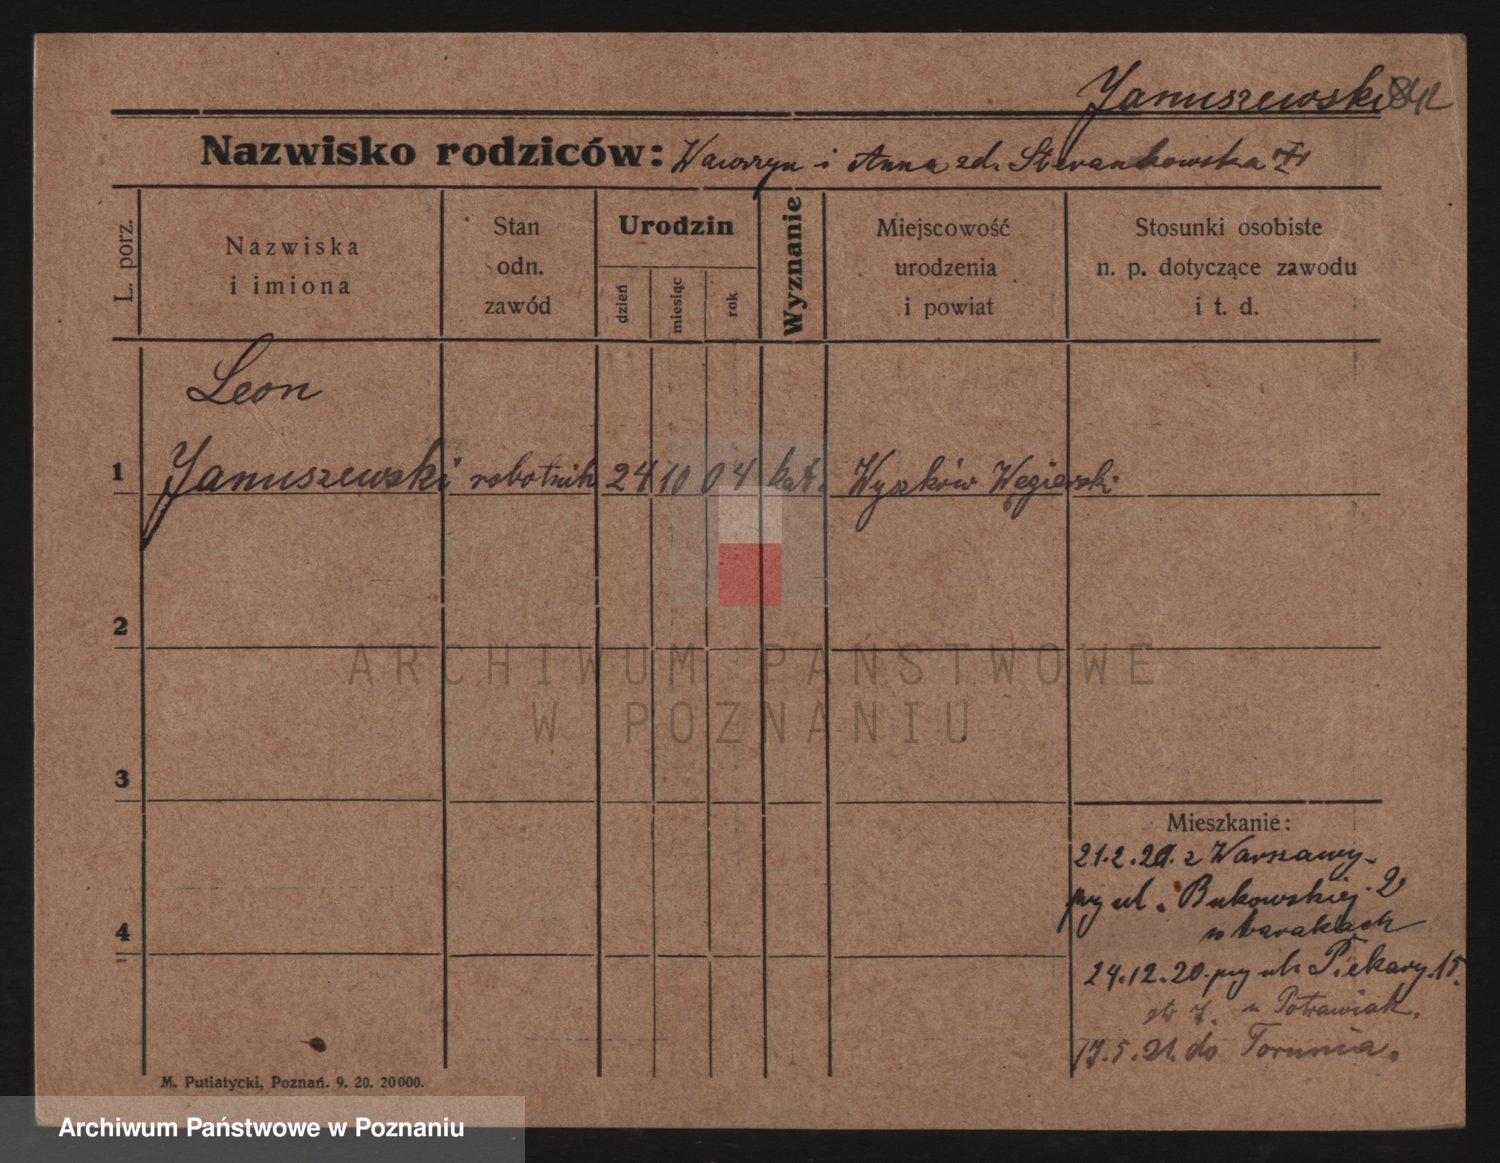 Januszewski
Nazwisko rodziców: Wawrzyn i Anna zd.
L. porz.
Nazwiska
i imiona
Stan
odn.
zawód
Urodzin
dzień
miesiąc
rok
Wyznanie
Miejscowość
urodzenia
i powiat
Stosunki osobiste
n. p. dotyczące zawodu
i t. d.
Leon
1 Januszewski robotnik 24 10 04 kat. Wyszków Węgierski
2
3
4
Mieszkanie:
21.2.20. z Warszawy
przy ul. Bukowskiej 2
w barakach
24.12.20. przy ul. Piekary 15.
u Potrawiak.
17.5.21. do Torunia.
M. Putiatycki, Poznań. 9. 20. 20000.
ARCHIWUM PAŃSTWOWE
W POZNANIU
Archiwum Państwowe w Poznaniu